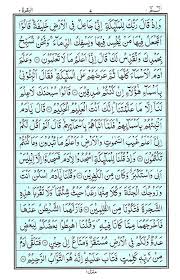 البقرة ٢
الٓمّٓ ١
وَاِذْ قَالَ رَبُّكَ لِلْمَلٰٓئِكَةِ اِنِّيْ جَاعِلٌ فِي الْاَرْضِ خَلِيْفَةً قَالُوْٓا
اَتَجْعَلُ فِيْهَا مَنْ يُّفْسِدُ فِيْهَا وَيَسْفِكُ الدِّمَآءَ وَنَحْنُ نُسَبِّحُ
بِحَمْدِكَ وَنُقَدِّسُ لَكَ قَالَ اِنِّيْٓ اَعْلَمُ مَا لَا تَعْلَمُوْنَ وَعَلَّمَ اٰدَمَ
الْاَسْمَآءَ كُلَّهَا ثُمَّ عَرَضَهُمْ عَلَى الْمَلٰٓئِكَةِ فَقَالَ اَنْۢبِئُوْنِيْ
بِاَسْمَآءِ هٰٓؤُلَآءِ اِنْ كُنْتُمْ صٰدِقِيْنَ قَالُوْا سُبْحٰنَكَ لَا عِلْمَ
لَنَآ اِلَّا مَا عَلَّمْتَنَا اِنَّكَ اَنْتَ الْعَلِيْمُ الْحَكِيْمُ قَالَ يٰٓاٰدَمُ اَنْۢبِئْهُمْ
بِاَسْمَآئِهِمْ فَلَمَّآ اَنْۢبَاَهُمْ بِاَسْمَآئِهِمْ قَالَ اَلَمْ اَقُلْ لَّكُمْ اِنِّيْٓ
اَعْلَمُ غَيْبَ السَّمٰوٰتِ وَالْاَرْضِ وَاَعْلَمُ مَا تُبْدُوْنَ وَمَا كُنْتُمْ
تَكْتُمُوْنَ وَاِذْ قُلْنَا لِلْمَلٰٓئِكَةِ اسْجُدُوْا لِاٰدَمَ فَسَجَدُوْٓا اِلَّآ
اِبْلِيْسَ اَبٰى وَاسْتَكْبَرَ وَكَانَ مِنَ الْكٰفِرِيْنَ وَقُلْنَا يٰٓاٰدَمُ اسْكُنْ اَنْتَ
وَزَوْجُكَ الْجَنَّةَ وَكُلَا مِنْهَا رَغَدًا حَيْثُ شِئْتُمَا وَلَا تَقْرَبَا هٰذِهِ
الشَّجَرَةَ فَتَكُوْنَا مِنَ الظّٰلِمِيْنَ فَاَزَلَّهُمَا الشَّيْطٰنُ عَنْهَا
فَاَخْرَجَهُمَا مِمَّا كَانَا فِيْهِ وَقُلْنَا اهْبِطُوْا بَعْضُكُمْ لِبَعْضٍ
عَدُوٌّ وَلَكُمْ فِي الْاَرْضِ مُسْتَقَرٌّ وَّمَتَاعٌ اِلٰى حِيْنٍ فَتَلَقّٰٓى اٰدَمُ
مِنْ رَّبِّهٖ كَلِمٰتٍ فَتَابَ عَلَيْهِ اِنَّهٗ هُوَ التَّوَّابُ الرَّحِيْمُ